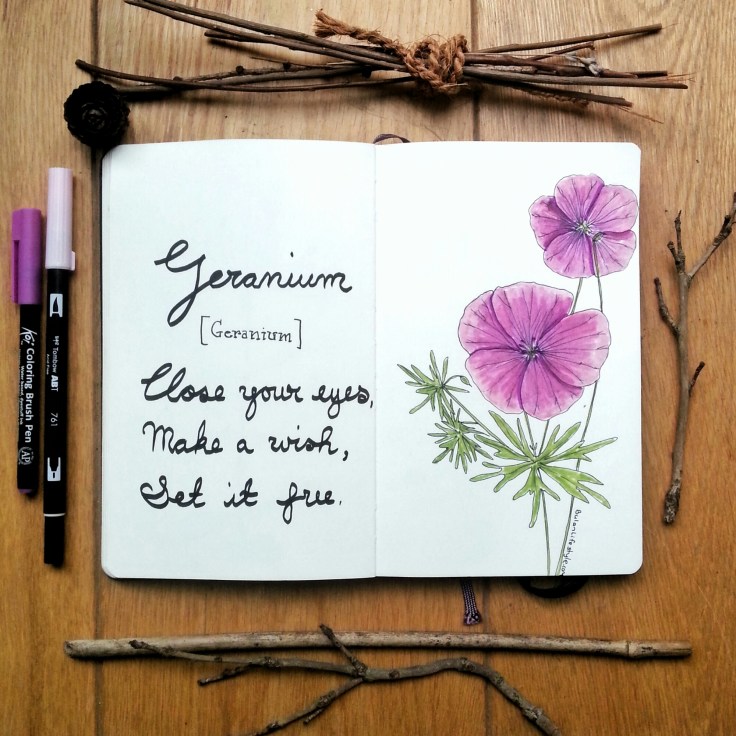 Geranium
[Geranium]
Close your eyes,
Make a wish,
Set it free.
Koi Coloring Brush Pen
Tombow ABT
761